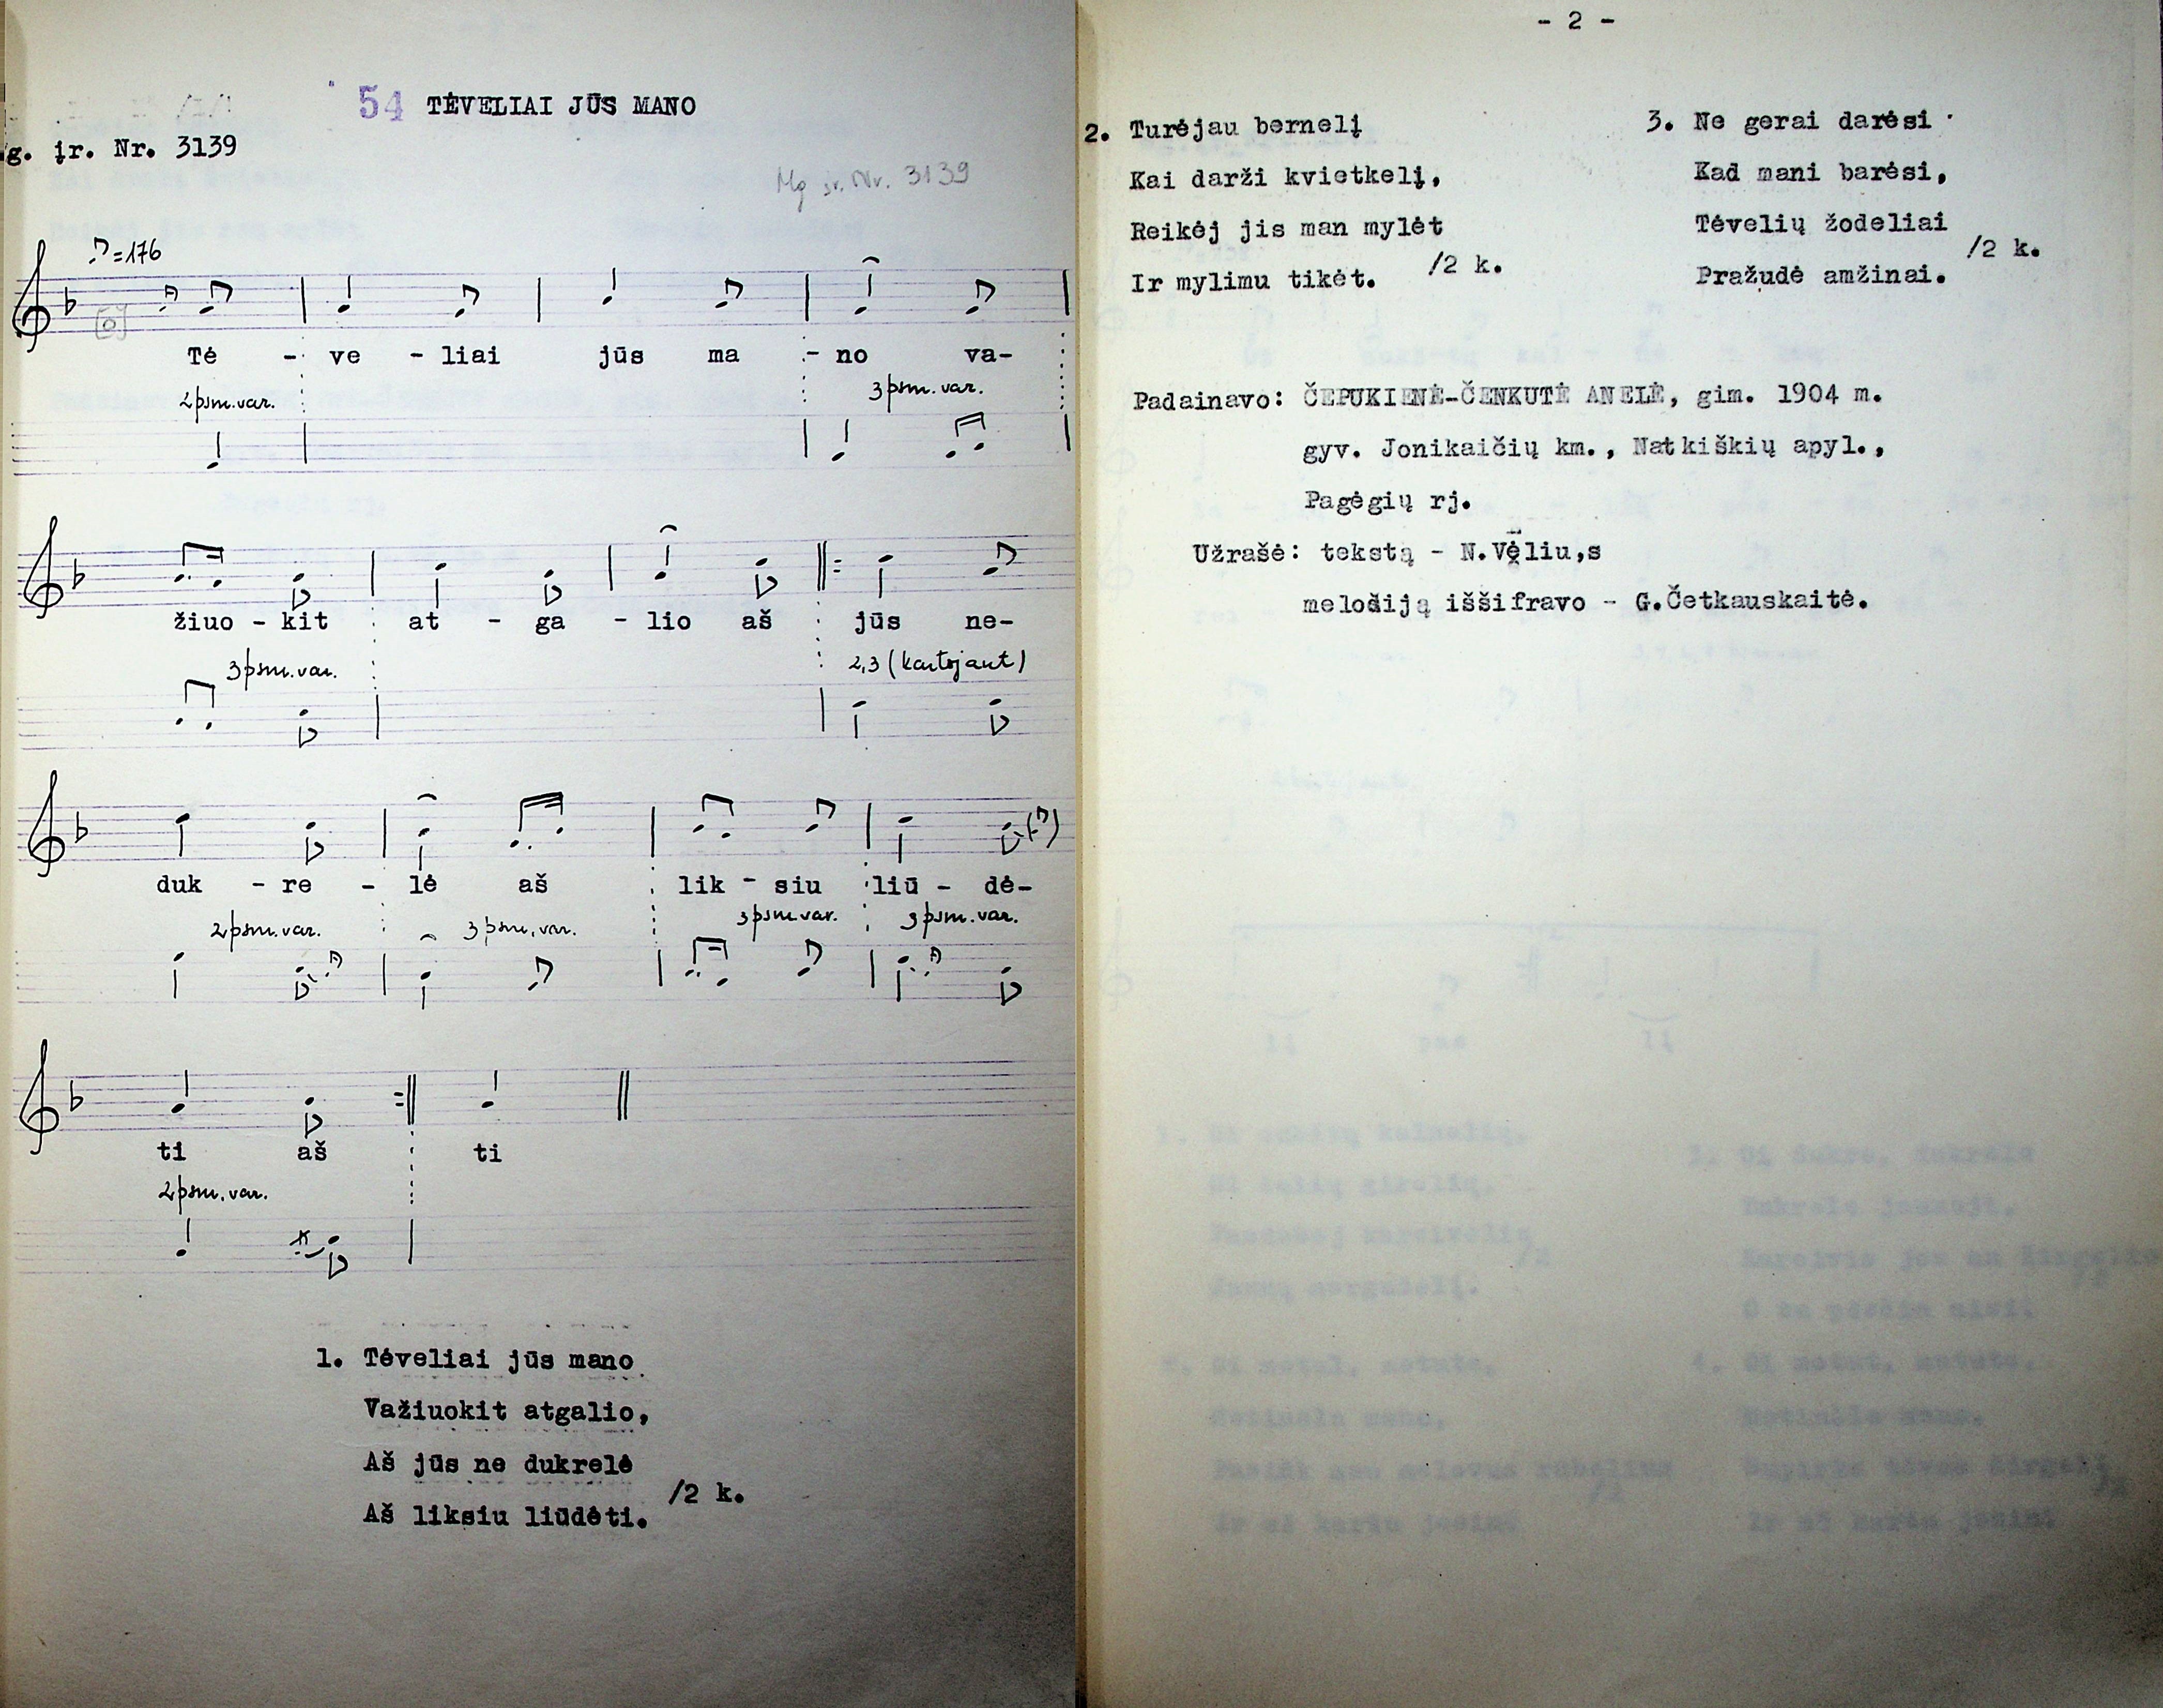 54 TĖVELIAI JŪS MANO
g. įr. Nr. 3139
Mg įr. Nr. 3139
♪=176
Tė - ve - liai jūs ma - no va-
2 psm. var. 3 psm. var.
žiuo - kit at - ga - lio aš jūs ne-
3 psm. var. 2,3 (kartojant)
duk - re - lė aš lik - siu liū - dė-
2 psm. var. 3 psm. var. 3 psm. var. 3 psm. var.
ti aš ti
2 psm. var.
1. Tėveliai jūs mano
Važiuokit atgalio,
Aš jūs ne dukrelė
/2 k.
Aš liksiu liūdėti.
- 2 -
2. Turėjau bernelį
Kai darži kvietkelį,
Reikėj jis man mylėt
/2 k.
Ir mylimu tikėt.
3. Ne gerai darėsi
Kad mani barėsi,
Tėvelių žodeliai
/2 k.
Pražudė amžinai.
Padainavo: ČEPUKIENĖ-ČENKUTĖ ANELĖ, gim. 1904 m.
gyv. Jonikaičių km., Natkiškių apyl.,
Pagėgių rj.
Užrašė: tekstą - N.Vėliu,s
melodiją iššifravo - G.Četkauskaitė.